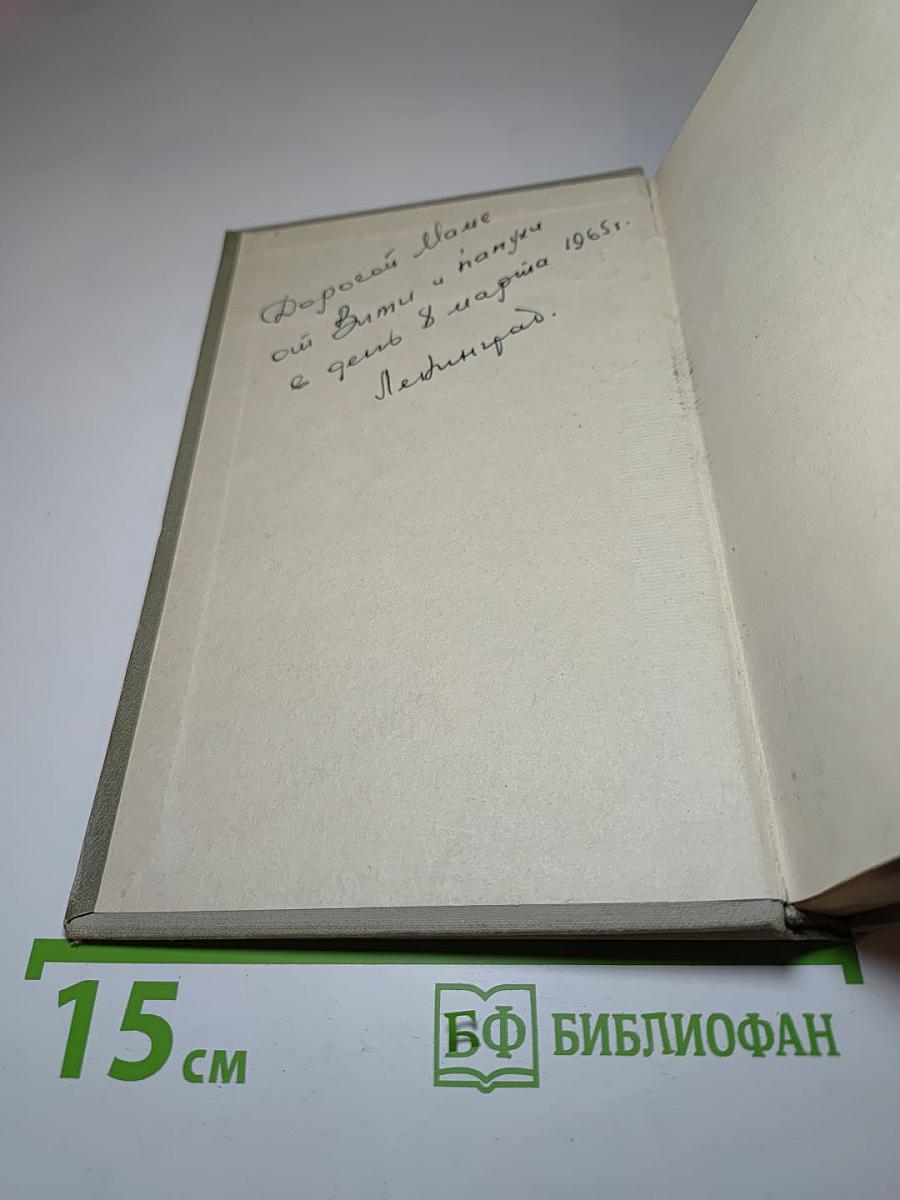 Дорогой Маме
от Вити и папули
в день 8 марта 1965г.
Ленинград.
15 см
БФ БИБЛИОФАН